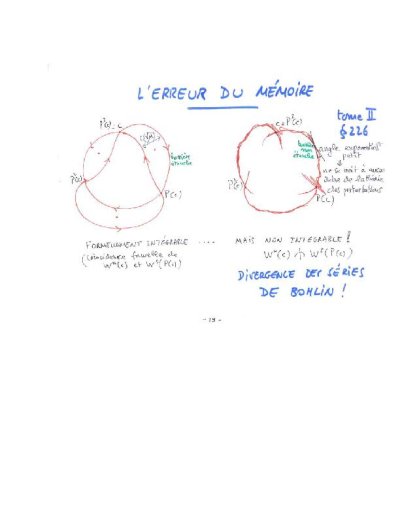 L'ERREUR DU MÉMOIRE
tome II
§ 226
P²(c) = c
c = P³(c)
(√μ)
barrière
étanche
barrière
non
étanche
angle exponentiel
petit
ne se voit à aucun
ordre de la théorie
des perturbations
P²(c)
P(c)
P²(c)
P(c)
FORMELLEMENT INTÉGRABLE ....
(Coincidence formelle de
Wᵘ(c) et Wˢ(P(c))
MAIS NON INTÉGRABLE !
Wᵘ(c) ⋔ Wˢ(P(c))
DIVERGENCE DES SÉRIES
DE BOHLIN !
- 19 -